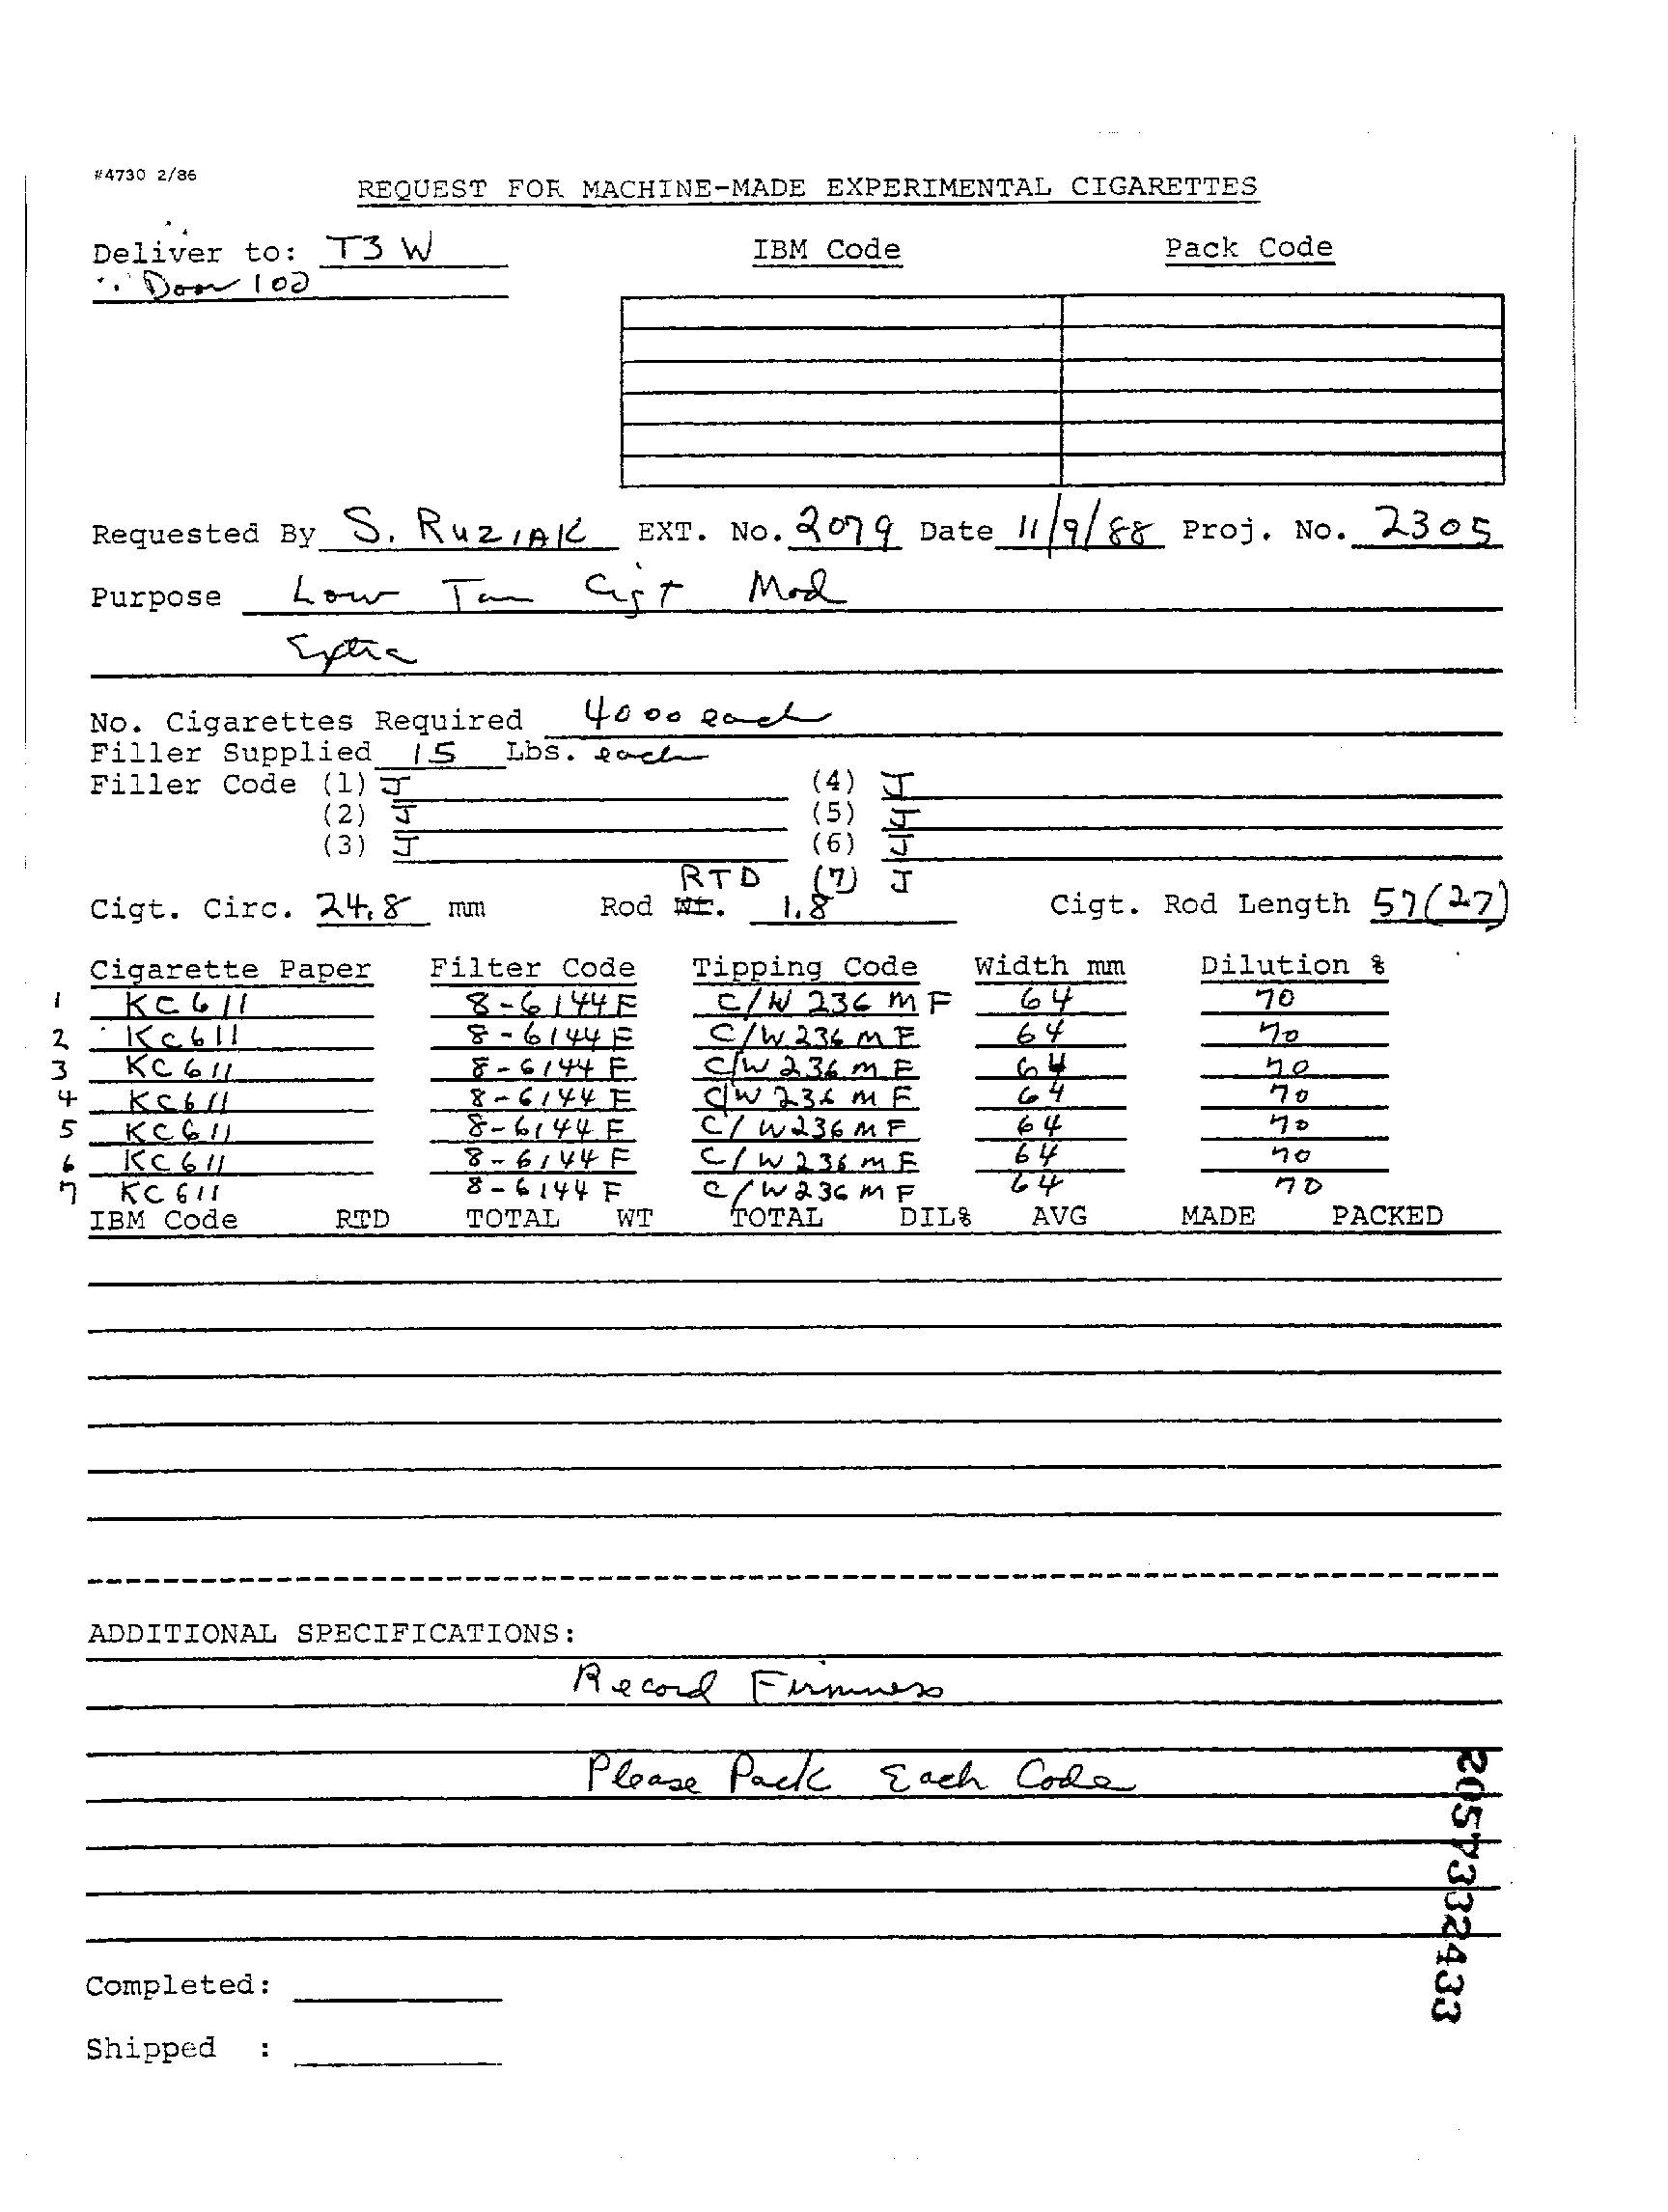 #4730 2/86
REQUEST FOR MACHINE-MADE EXPERIMENTAL CIGARETTES
Deliver to: T3 W IBM Code Pack Code
Door 102
Requested By S. RUZIAK EXT. No. 2079 Date 11/9/88 Proj. No. 2305
Purpose Low Tar Cigt Mod
Extra
No. Cigarettes Required 4000 each
Filler Supplied 15 Lbs. each
Filler Code (1) J (4) J
(2) J (5) J
(3) J (6) J
RTD (7) J
Cigt. Circ. 24.8 mm Rod Wt. 1.8 Cigt. Rod Length 57(27)
Cigarette Paper Filter Code Tipping Code Width mm Dilution %
1 KC611 8-6144F C/W 236 MF 64 70
2 KC611 8-6144F C/W 236 MF 64 70
3 KC611 8-6144F C/W 236 MF 64 70
4 KC611 8-6144F C/W 236 MF 64 70
5 KC611 8-6144F C/W 236 MF 64 70
6 KC611 8-6144F C/W 236 MF 64 70
7 KC611 8-6144F C/W 236 MF 64 70
IBM Code RTD TOTAL WT TOTAL DIL% AVG MADE PACKED
ADDITIONAL SPECIFICATIONS:
Record Firmness
Please Pack Each Code
Completed:
Shipped :
2057332433